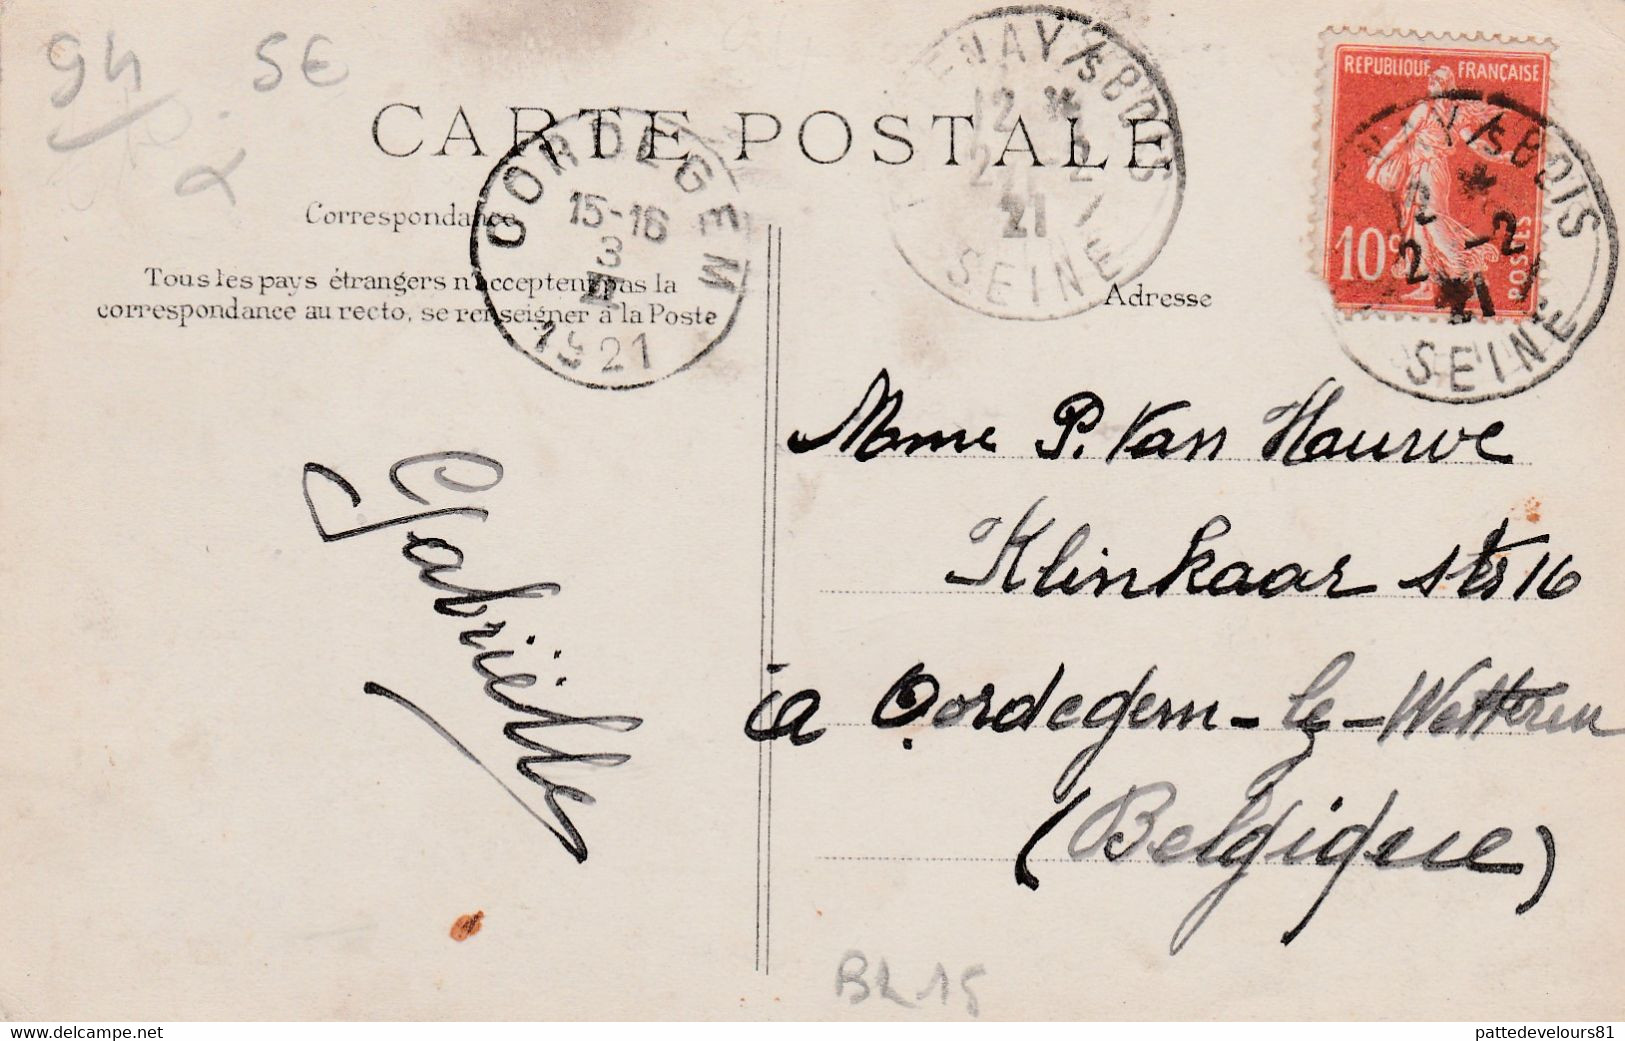 94
5€
CARTE POSTALE
Correspondance
Tous les pays étrangers n'acceptent pas la
correspondance au recto, se renseigner à la Poste
OORDEGEM
15-16
3
II
1921
ENAY /s BOIS
12 *
2 - 2
21
SEINE
Adresse
REPUBLIQUE FRANÇAISE
10c
POSTES
NAY /s BOIS
12 *
2 - 2
21
SEINE
Mme P. Van Hauwe
Klinkaar str 16
à Oordegem-le-Wetteren
(Belgique)
Gabriëlle
BL 15
delcampe.net
pattedevelours81